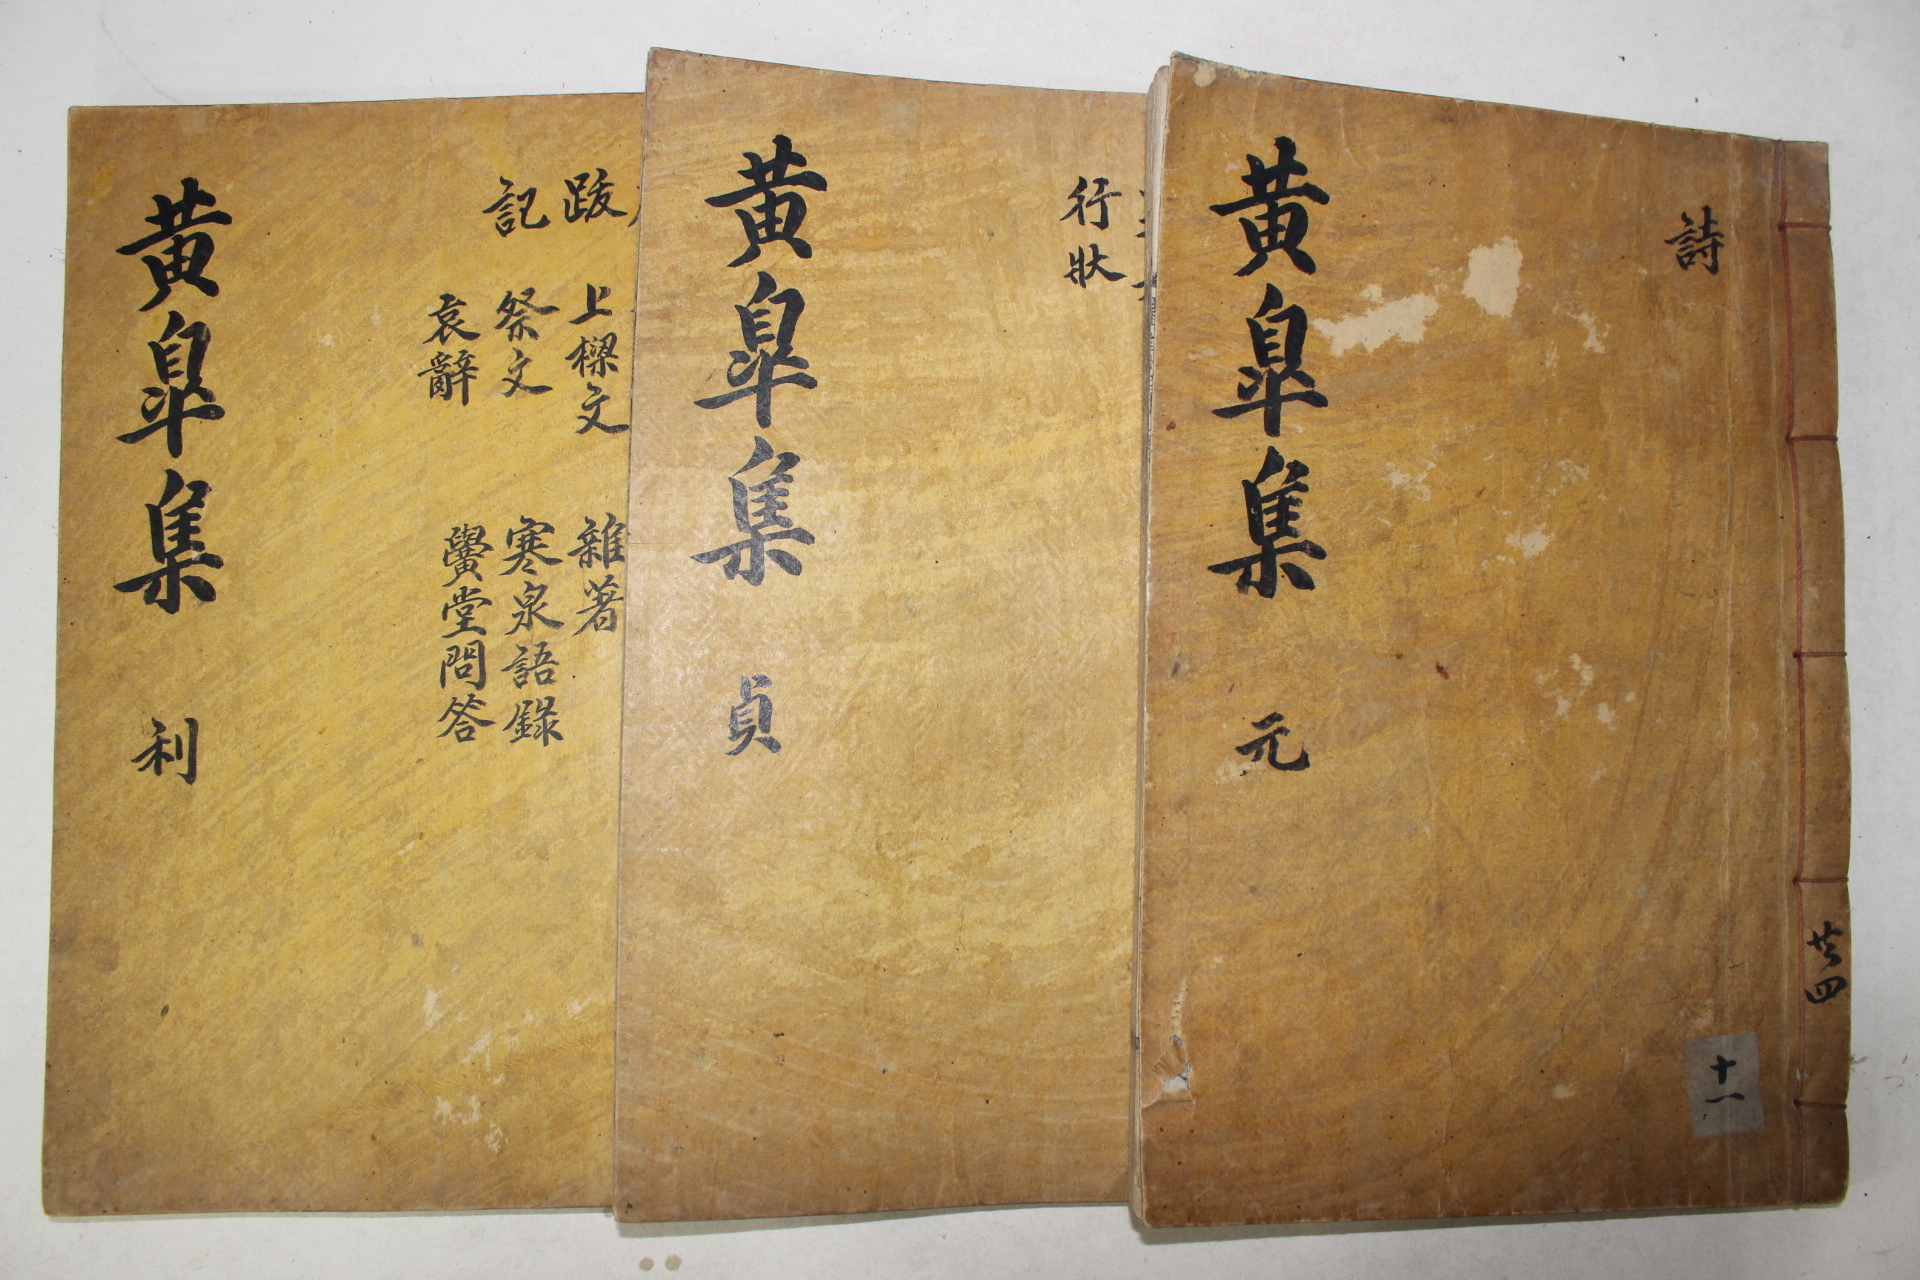 詩
黃皐集 元
廿四
十一
行狀
黃皐集 貞
跋 上樑文 雜著
記 祭文 寒泉語錄
哀辭 黌堂問答
黃皐集 利